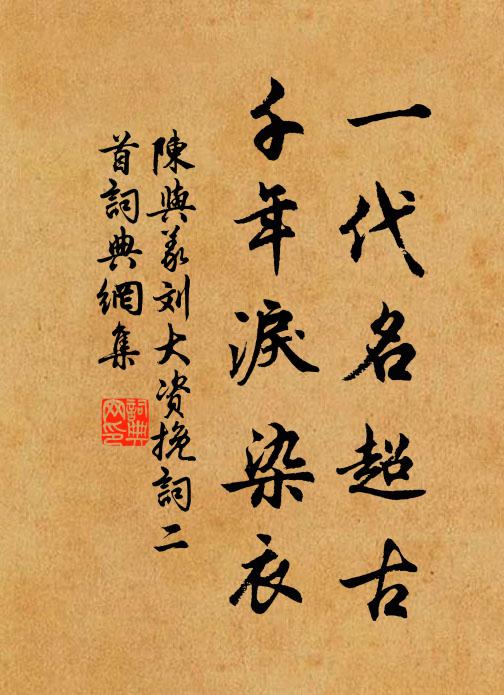 一代名超古
千年淚染衣
陳與義刘大资挽詞二
首詞典網集
詞典网印